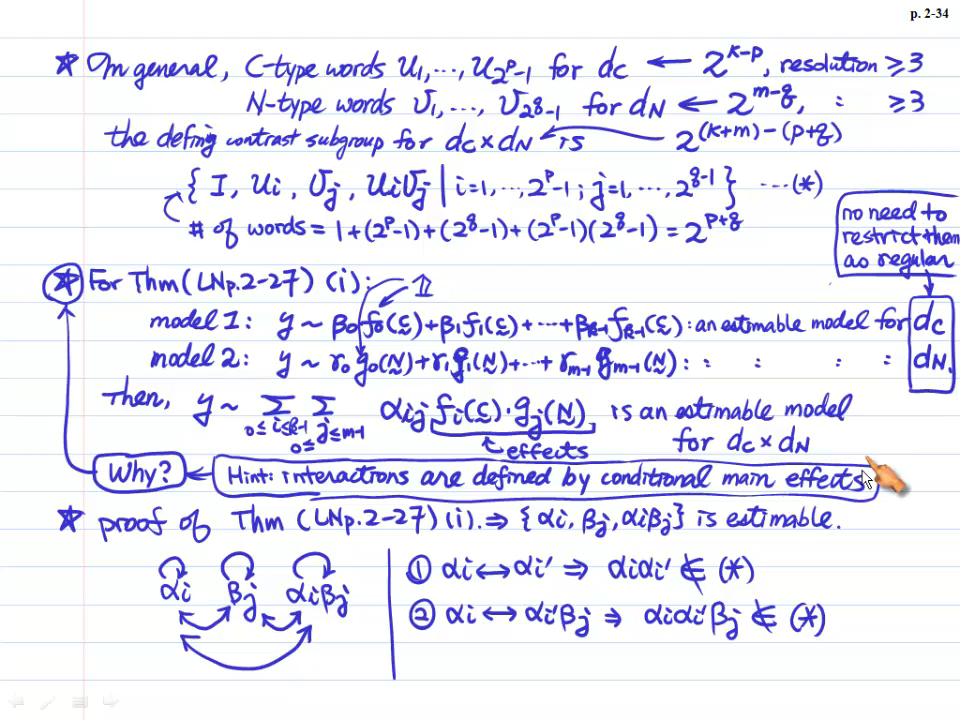 p. 2-34
* In general, C-type words U1, ..., U2^p-1 for dc ← 2^k-p, resolution ≥3
N-type words V1, ..., V2^q-1 for dN ← 2^m-q, : ≥3
the defing contrast subgroup for dc×dN is ← 2^(k+m)-(p+q)
{ I, Ui, Vj, UiVj | i=1, ..., 2^p-1; j=1, ..., 2^q-1 } ---(*)
# of words = 1+(2^p-1)+(2^q-1)+(2^p-1)(2^q-1) = 2^p+q
no need to
restrict them
as regular
* For Thm (LNp.2-27) (i): 1
model 1: y ~ β0f0(C)+β1f1(C)+...+βk-1fk-1(C): an estimable model for dc
model 2: y ~ r0g0(N)+r1g1(N)+...+rm-1gm-1(N): : : : : dN.
Then, y ~ Σ 0≤i≤k-1 Σ 0≤j≤m-1 αij fi(C)·gj(N) is an estimable model
effects for dc×dN
Why? ← Hint: interactions are defined by conditional main effects
* proof of Thm (LNp.2-27)(i). ⇒ {αi, βj, αiβj} is estimable.
αi βj αiβj
① αi ↔ αi' ⇒ αiαi' ∉ (*)
② αi ↔ αi'βj ⇒ αiαi'βj ∉ (*)